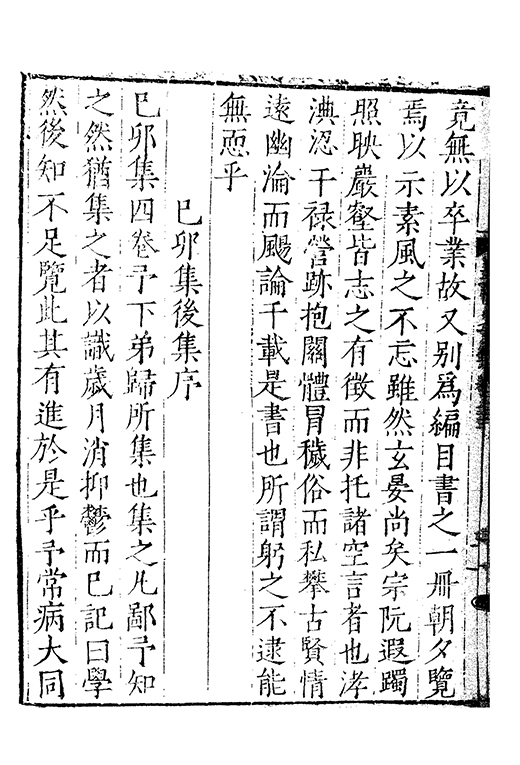 竟無以卒業故又别為編目書之一冊朝夕覽
焉以示素風之不忘雖然玄晏尚矣宗阮遐躅
照映巖壑皆志之有徵而非托諸空言者也涬
淟涊干禄營跡抱關體冒穢俗而私攀古賢情
遠幽淪而颺論千載是書也所謂躬之不逮能
無恧乎
己卯集後集序
己卯集四卷予下弟歸所集也集之凡鄙予知
之然猶集之者以識歲月消抑鬱而已記曰學
然後知不足覽此其有進於是乎予常病大同